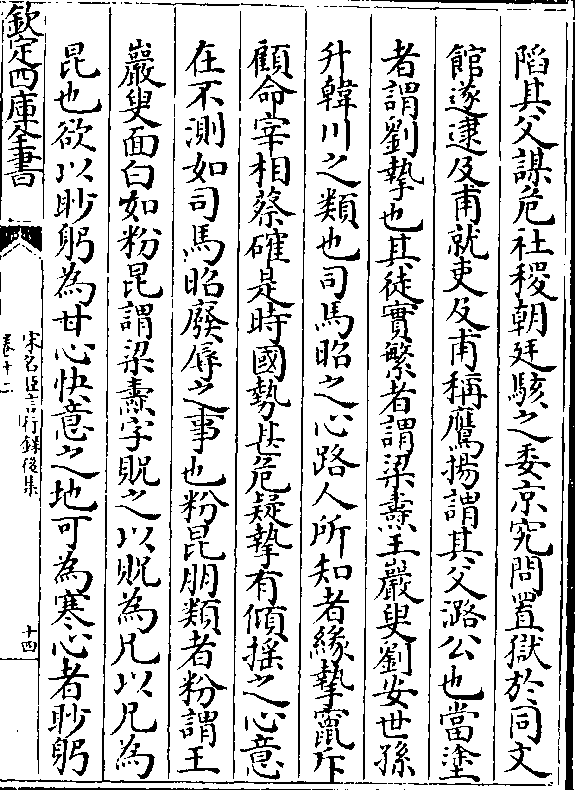 陷其父謀危社稷朝廷駭之委京究問置獄於同文
館遂逮及甫就吏及甫稱鷹揚謂其父潞公也當塗
者謂劉摯也其徒實繁者謂梁燾王巖叟劉安世孫
升韓川之類也司馬昭之心路人所知者緣摯竄斥
顧命宰相蔡確是時國勢甚危疑摯有傾搖之心意
在不測如司馬昭廢辱之事也粉昆朋類者粉謂王
巖叟面白如粉昆謂梁燾字况之以况為兄以兄為
昆也欲以眇躬為甘心快意之地可為寒心者眇躬
欽定四庫全書
宋名臣言行錄後集
卷十二
十四